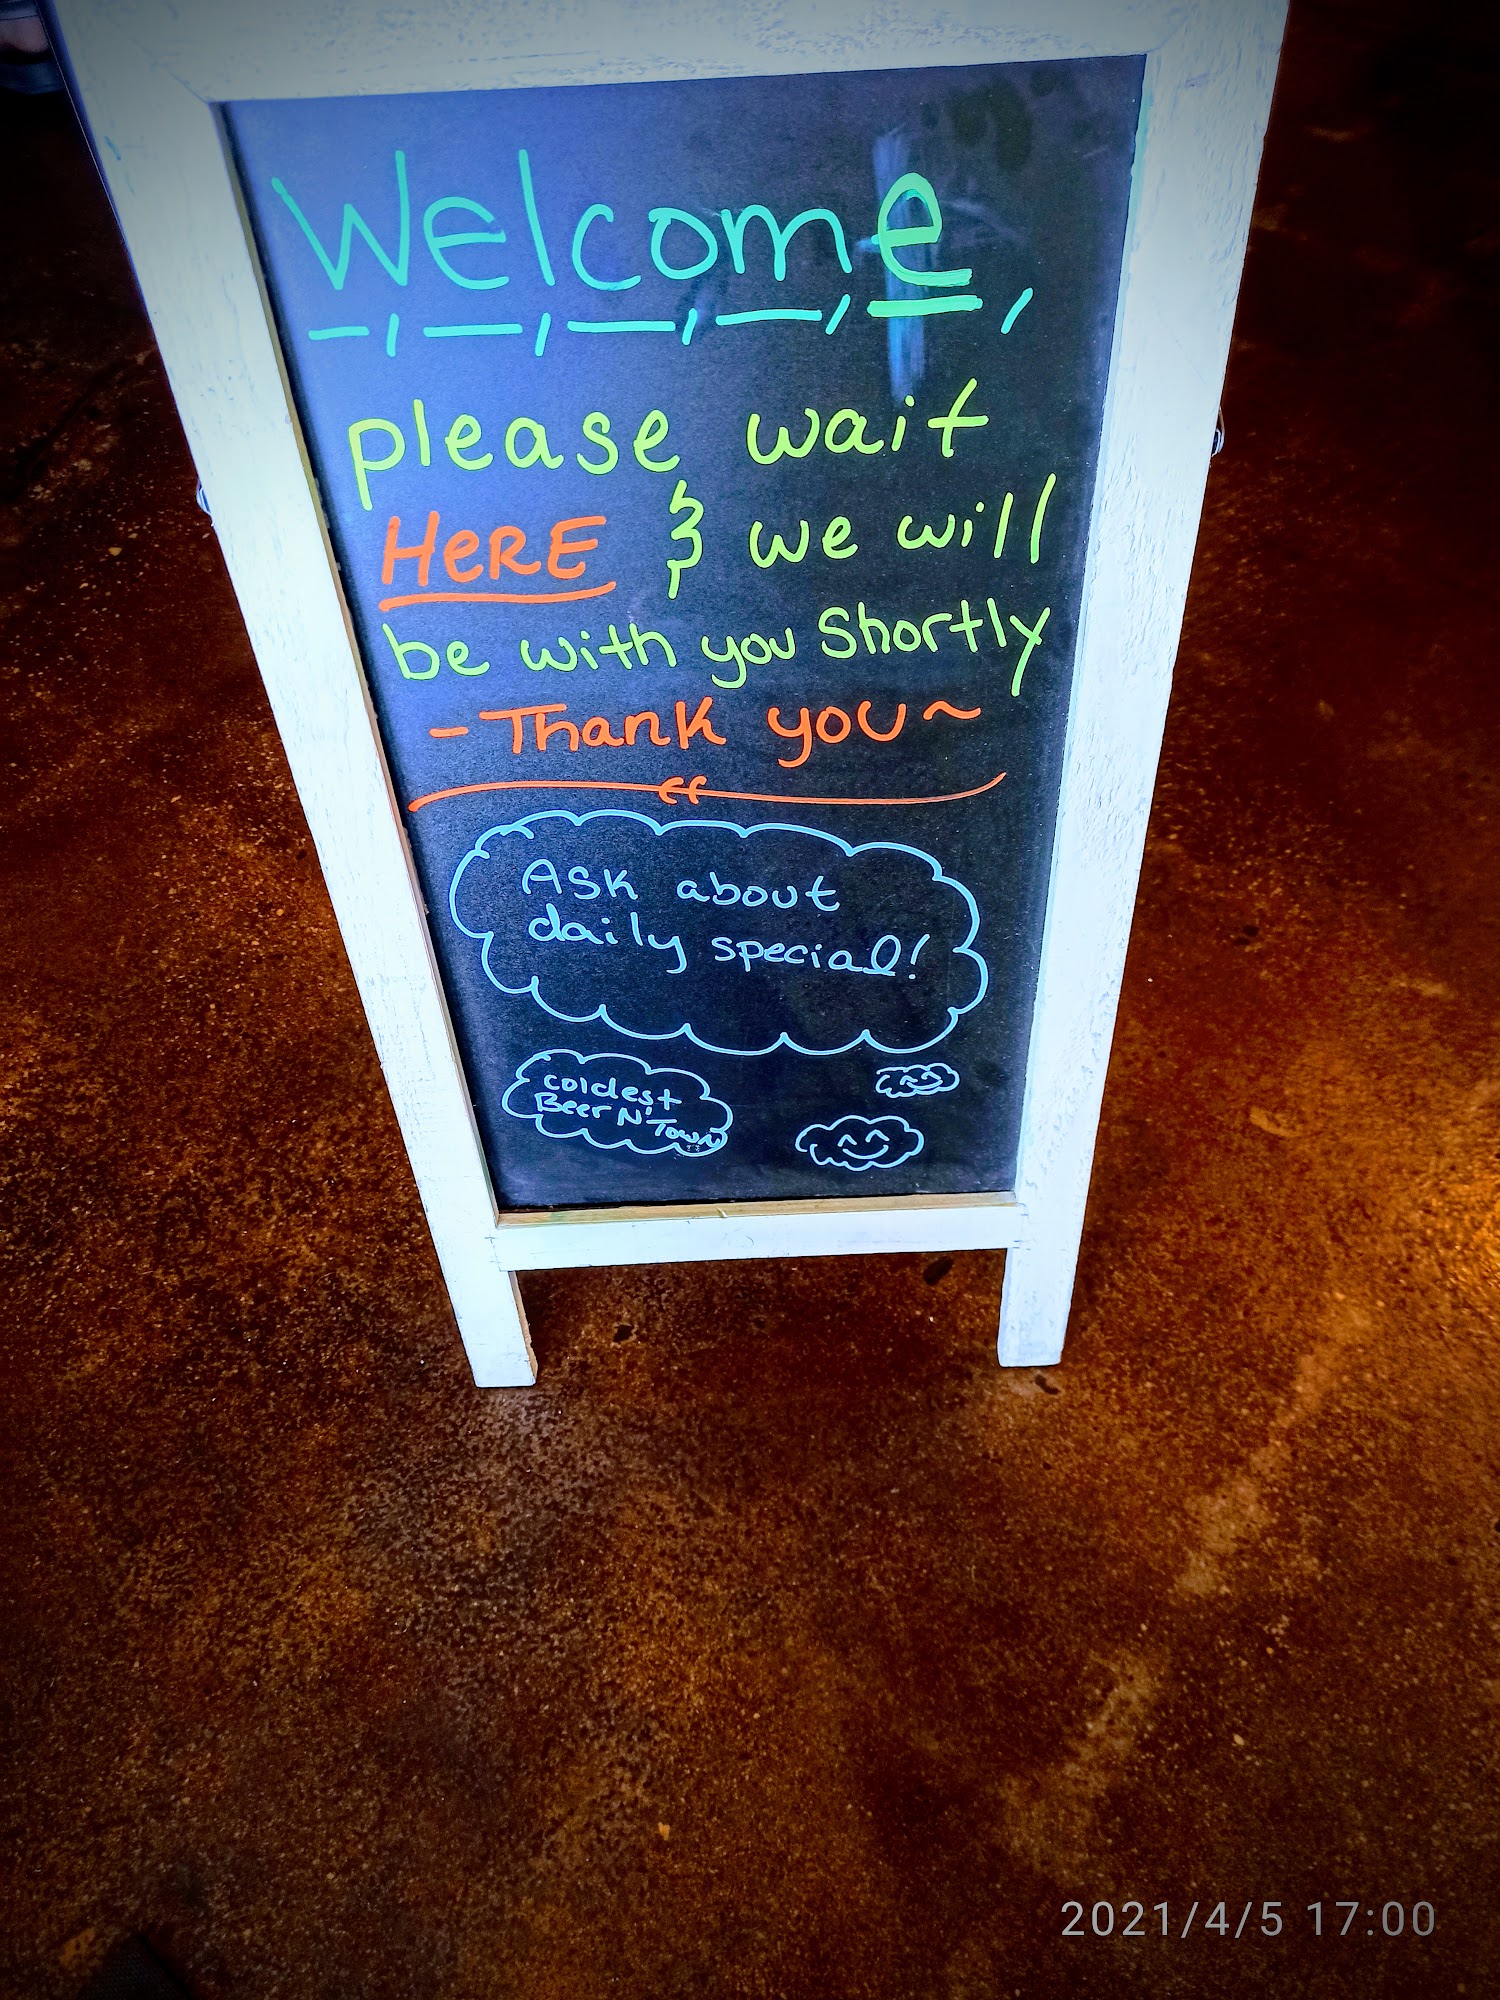 Welcome
please wait
HeRE & we will
be with you Shortly
- Thank you ~
Ask about
daily special!
coldest
Beer N' Town
2021/4/5 17:00